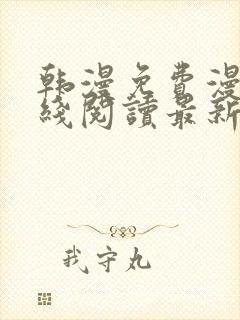 韩漫免费漫
线阅读最新
我守丸